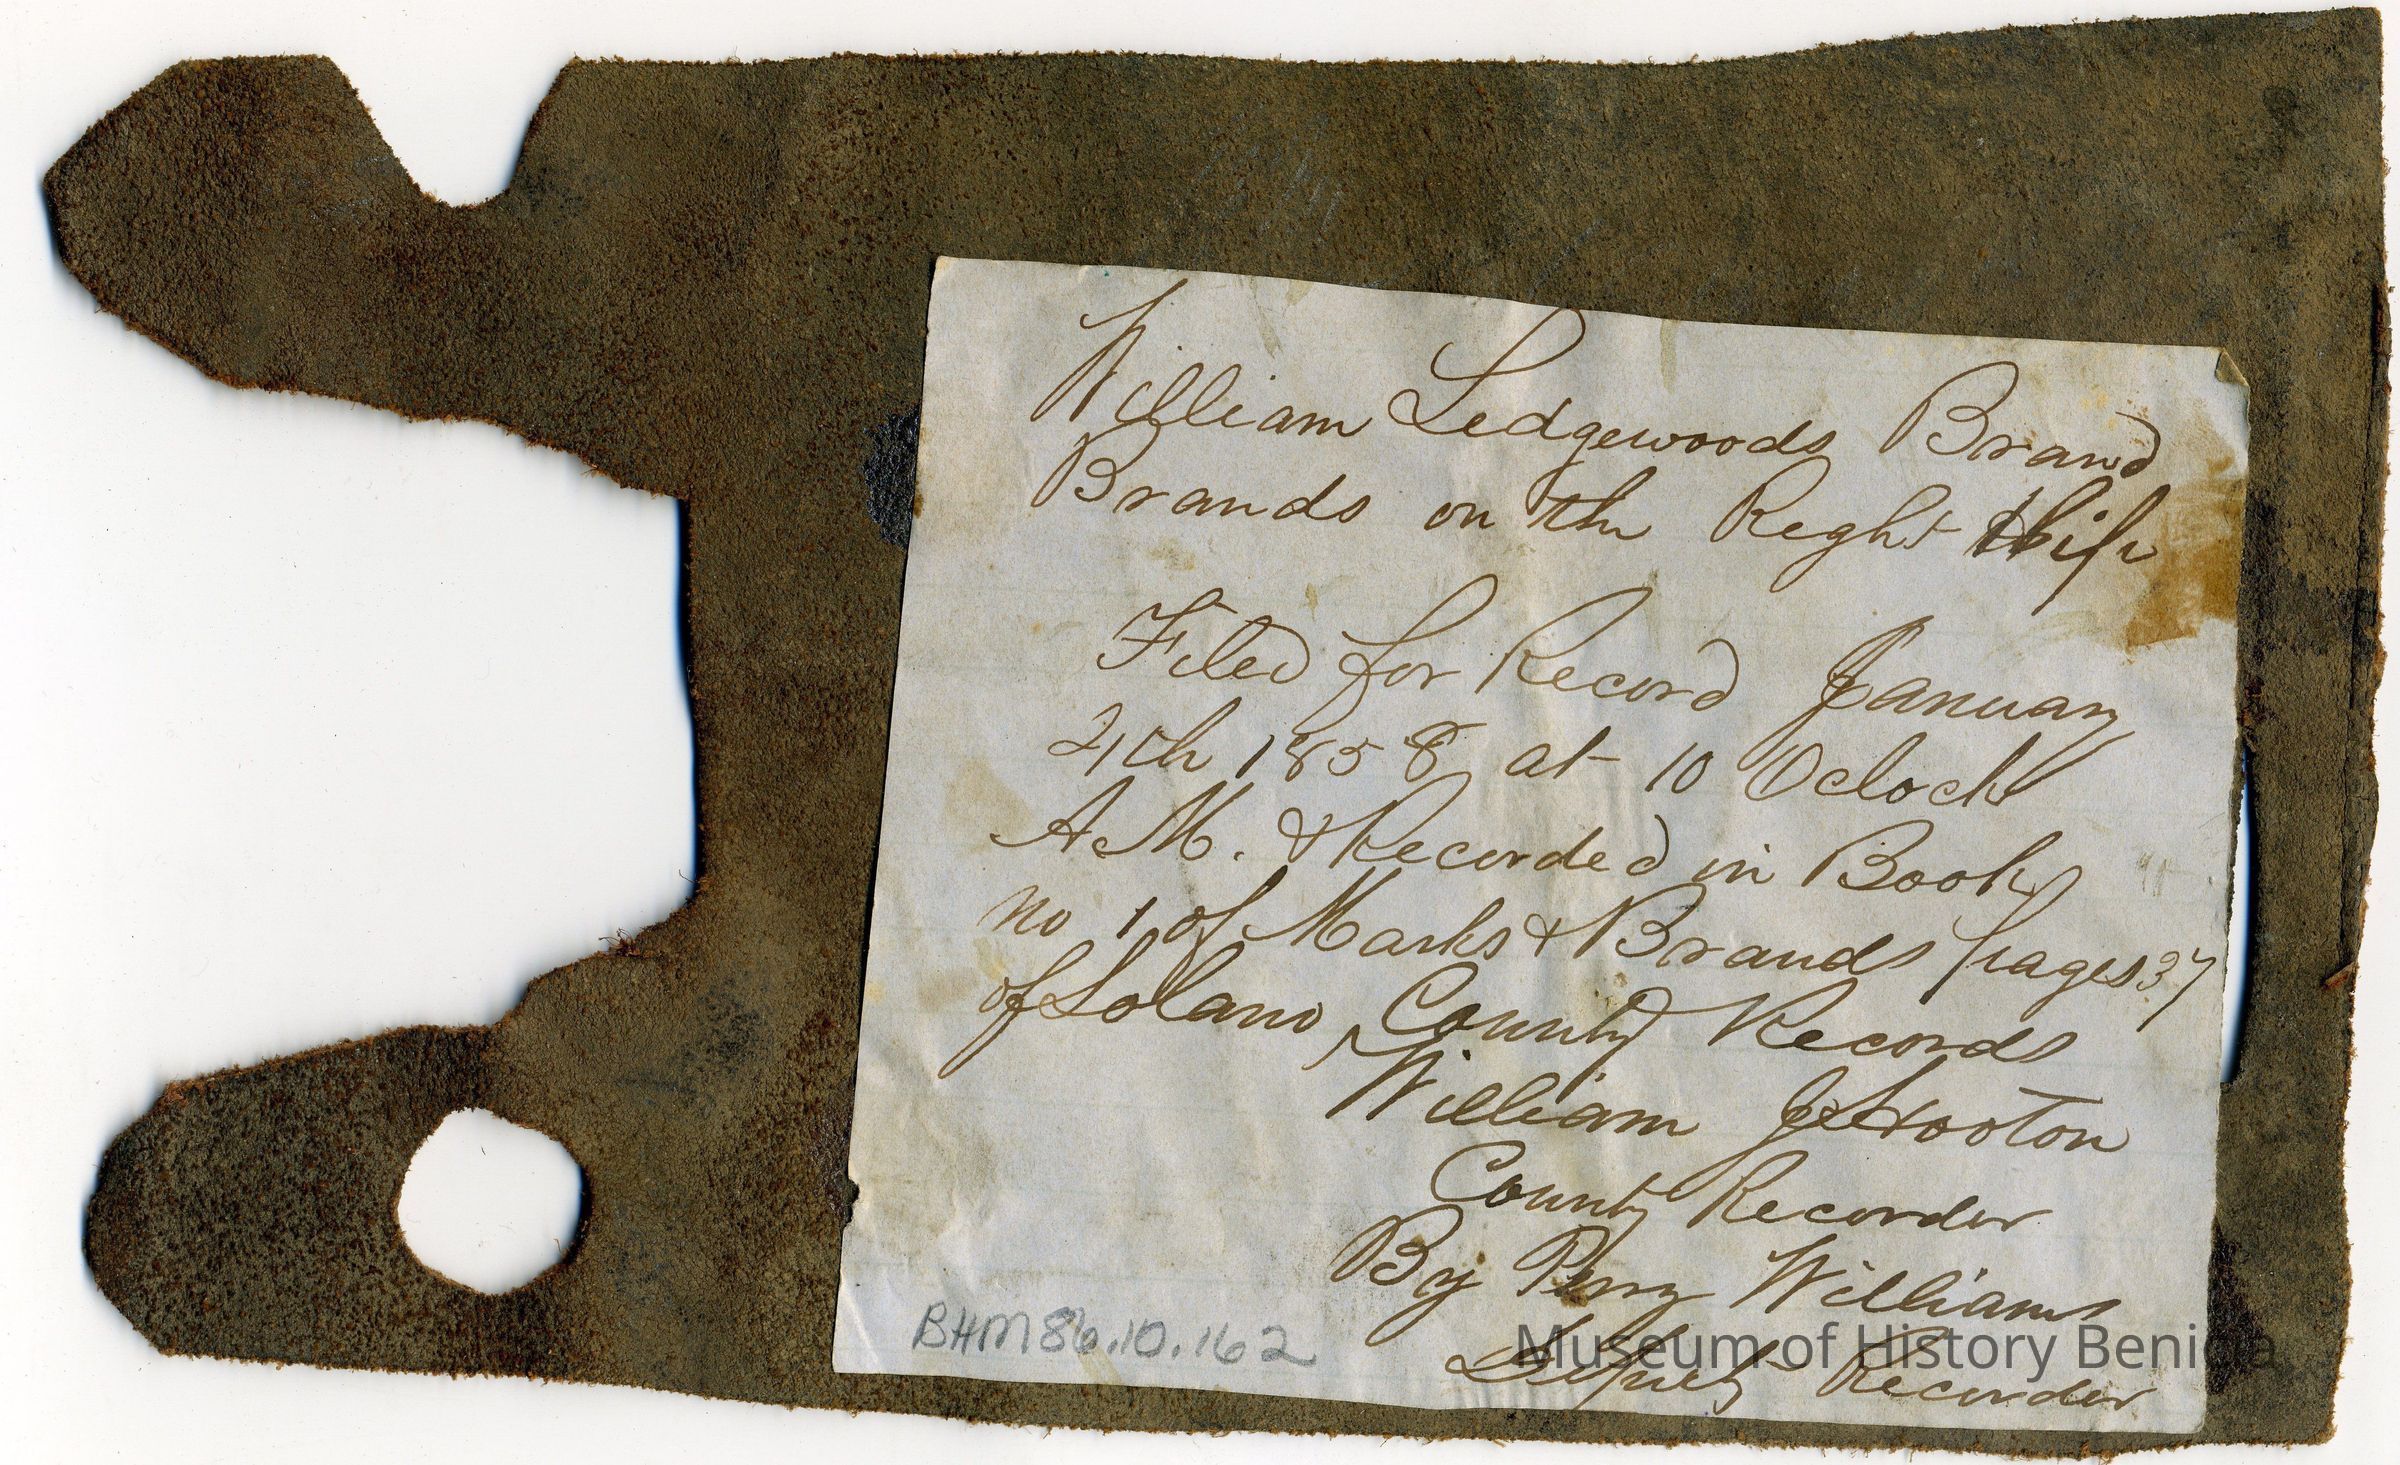 William Ledgewoods Brand
Brands on the Right Hip
Filed for Record January
21th 1858 at 10 Oclock
A.M. & Recorded in Book
No 1 of Marks & Brands pages 37
of Solano County Records
William Hooton
County Recorder
By Perry Williams
Deputy Recorder
BHM 86.10.162
Museum of History Benicia